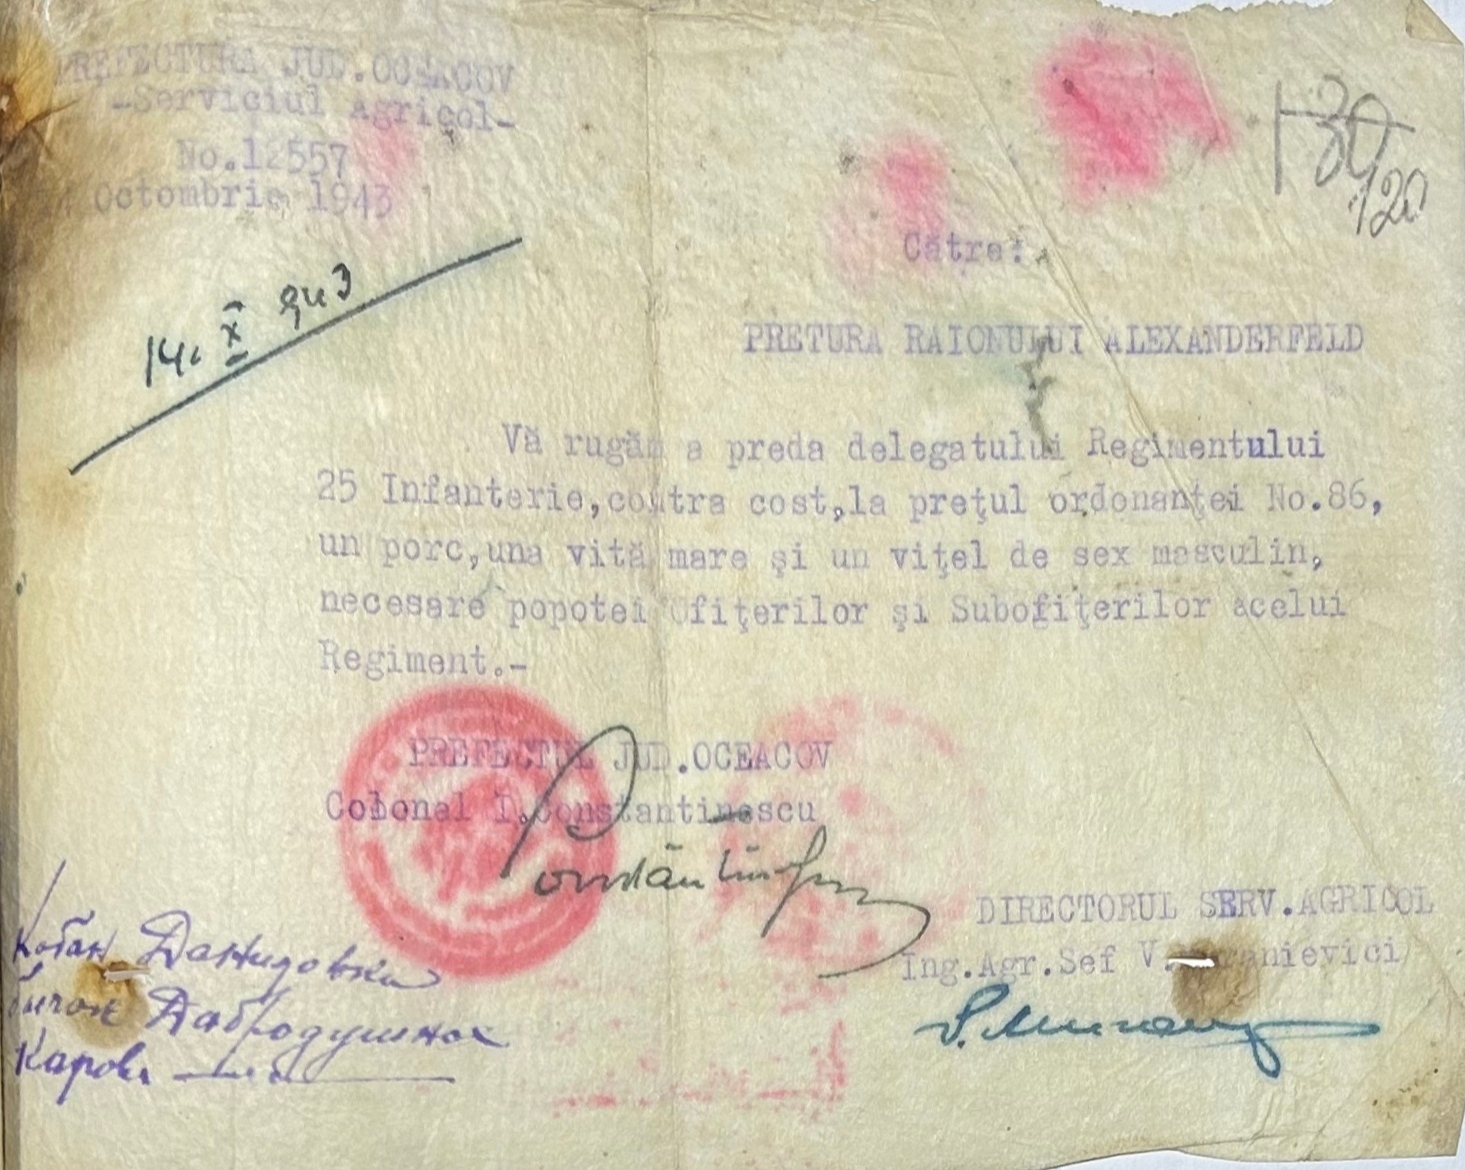 PREFECTURA JUD.OCEACOV
-Serviciul Agricol-
No.12557
14 Octombrie 1943
130
120
14. X 943
Către:
PRETURA RAIONULUI ALEXANDERFELD
Vă rugăm a preda delegatului Regimentului
25 Infanterie,contra cost,la prețul ordonanței No.86,
un porc,una vită mare și un vițel de sex masculin,
necesare popotei Ofițerilor și Subofițerilor acelui
Regiment.-
PREFECTUL JUD.OCEACOV
Colonel I.Constantinescu
DIRECTORUL SERV.AGRICOL
Ing.Agr.Sef V.
Кабан Данидовка
бичок
Карова